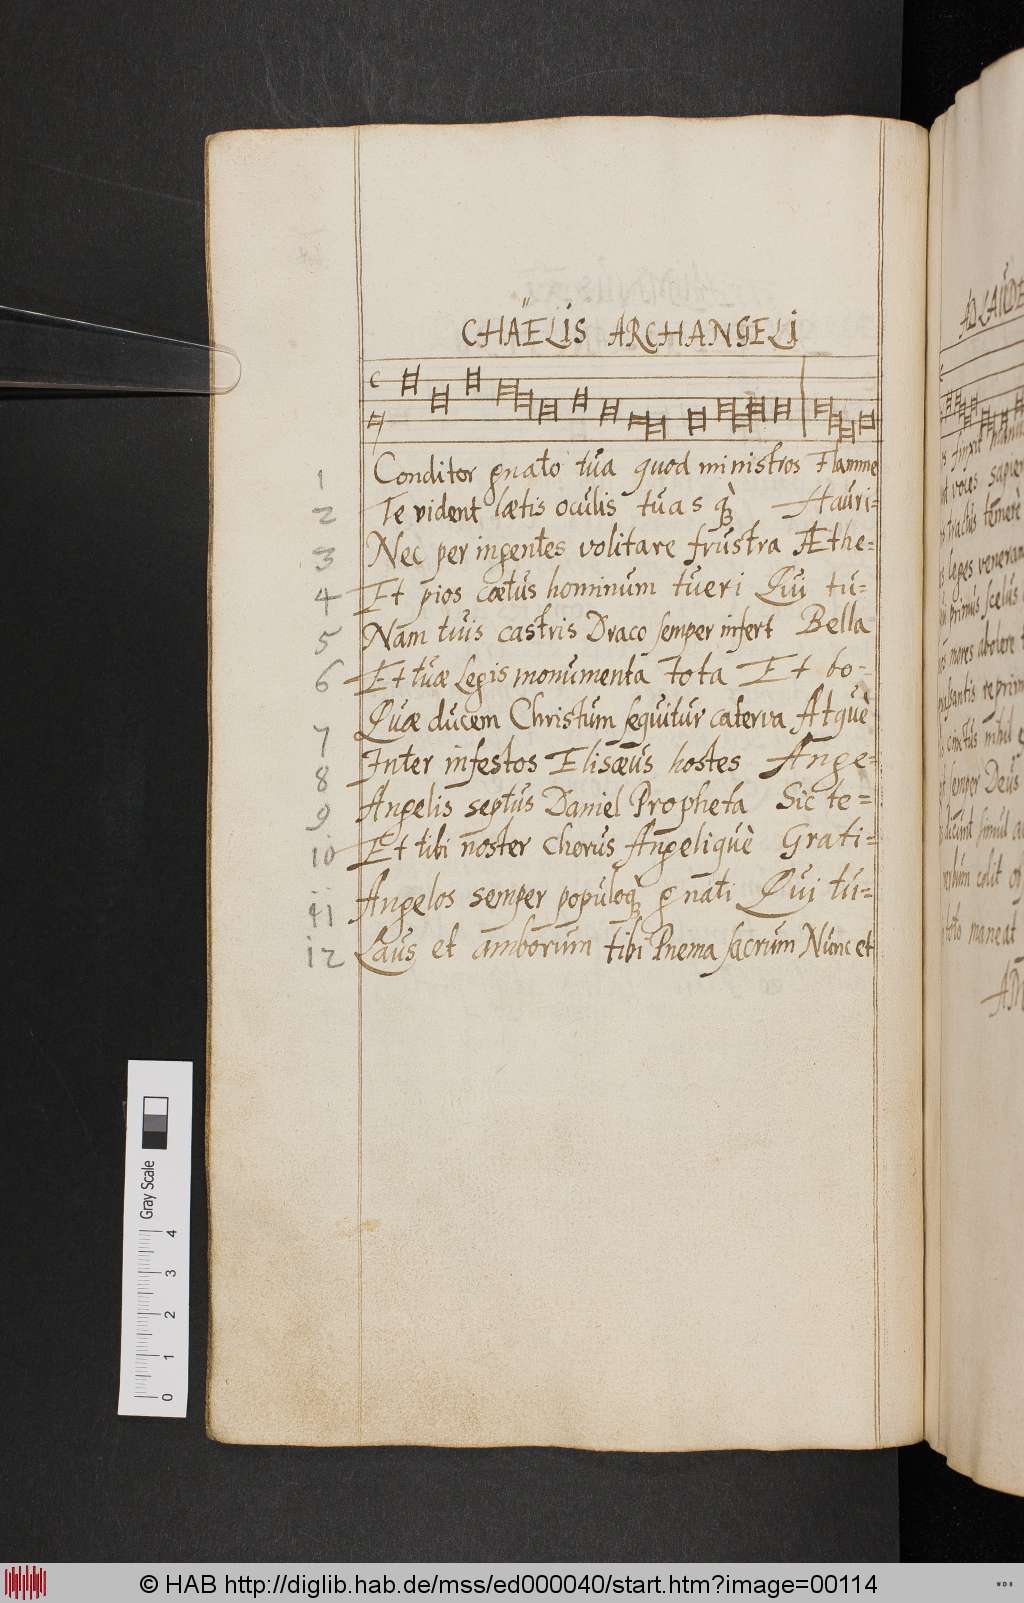 CHAËLIS ARCHANGELI
1 Conditor gnato tua quod ministros Flamme
2 Te vident lætis oculis tuas q̀ Hauri-
3 Nec per ingentes volitare frustra Æthe-
4 Et pios cœtus hominum tueri Qui tu-
5 Nam tuis castris Draco semper infert Bella
6 Et tuæ Legis monumenta tota Et bo-
7 Quæ ducem Christum sequitur caterva Atquè
8 Inter infestos Elisæus hostes Ange-
9 Angelis septus Daniel Propheta Sic te-
10 Et tibi noster chorus Angeliquè Grati-
11 Angelos semper populoq̀ gnati Qui tu-
12 Laus et amborum tibi Pnema sacrum Nunc et
AD LAUDE
leges veneran
primus scelus
mores abolere
reprim
cinctus nihil
semper Deus
dicunt simul
colit
maneat
Gray Scale
0 1 2 3 4
© HAB http://diglib.hab.de/mss/ed000040/start.htm?image=00114